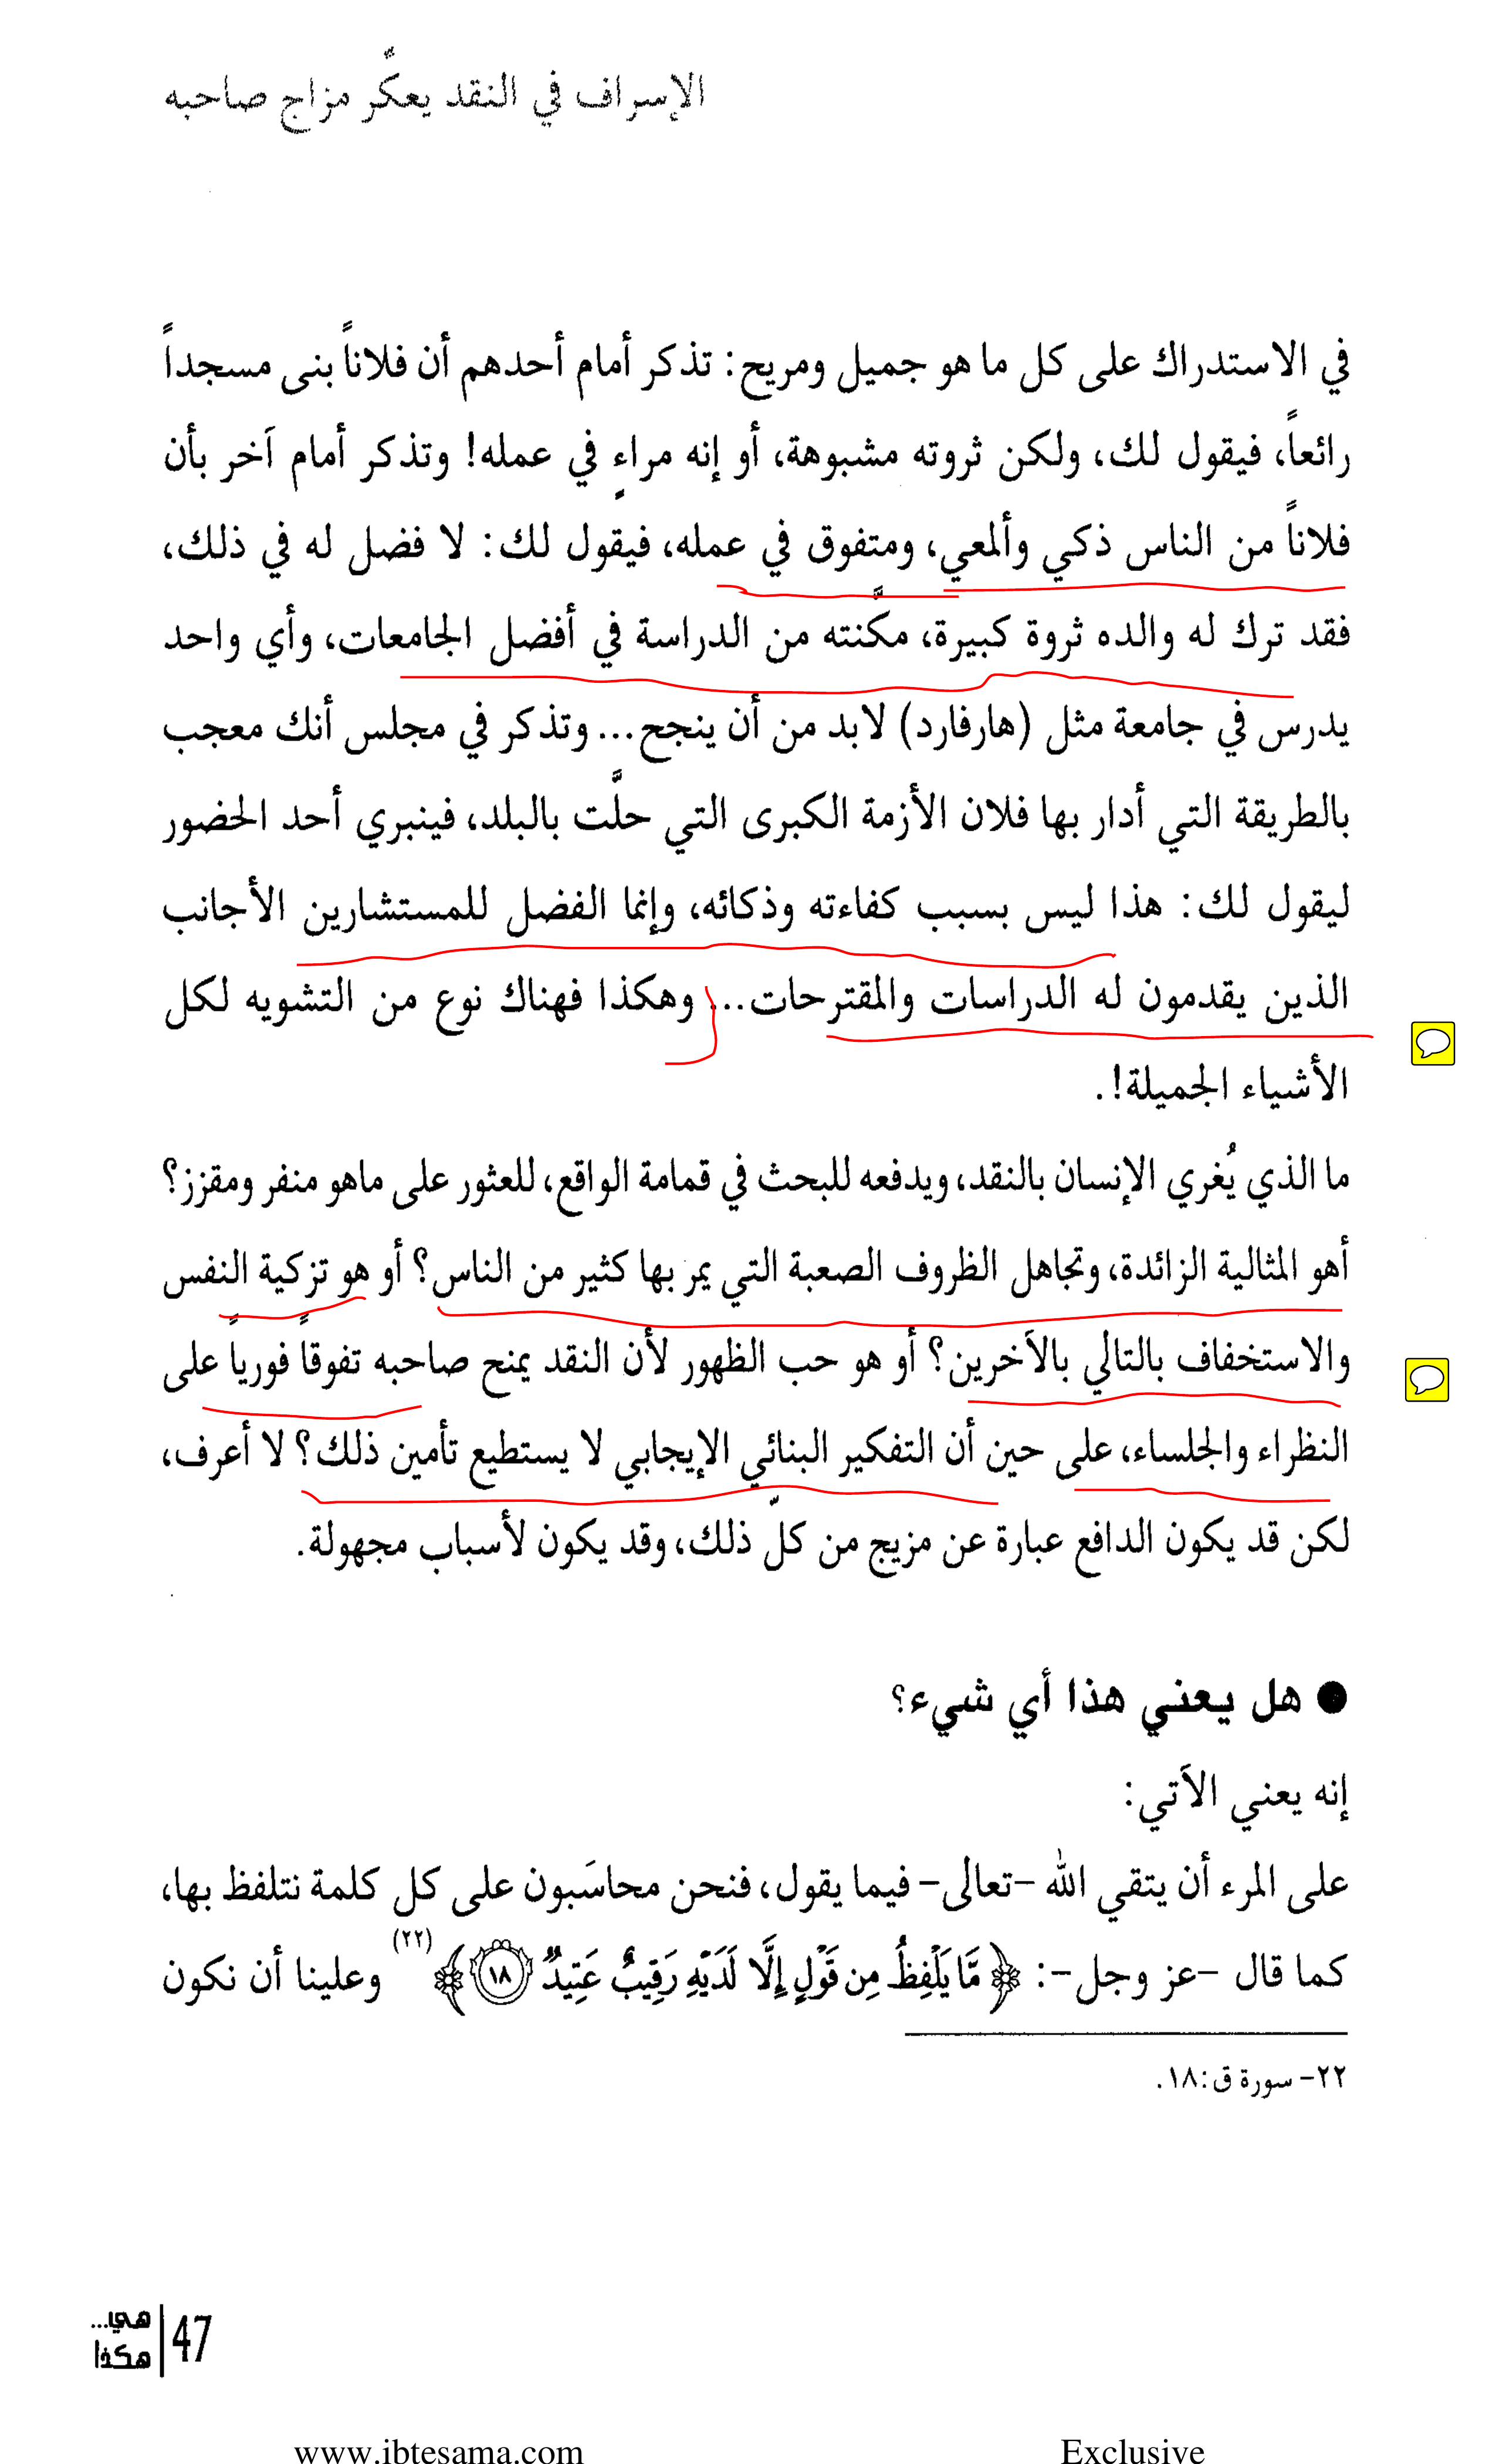 الإسراف في النقد يعكّر مزاج صاحبه
في الاستدراك على كل ما هو جميل ومريح: تذكر أمام أحدهم أن فلاناً بنى مسجداً
رائعاً، فيقول لك، ولكن ثروته مشبوهة، أو إنه مراءٍ في عمله! وتذكر أمام آخر بأن
فلاناً من الناس ذكي وألمعي، ومتفوق في عمله، فيقول لك: لا فضل له في ذلك،
فقد ترك له والده ثروة كبيرة، مكَّنته من الدراسة في أفضل الجامعات، وأي واحد
يدرس في جامعة مثل (هارفارد) لابد من أن ينجح... وتذكر في مجلس أنك معجب
بالطريقة التي أدار بها فلان الأزمة الكبرى التي حلَّت بالبلد، فينبري أحد الحضور
ليقول لك: هذا ليس بسبب كفاءته وذكائه، وإنما الفضل للمستشارين الأجانب
الذين يقدمون له الدراسات والمقترحات... وهكذا فهناك نوع من التشويه لكل
الأشياء الجميلة!.
ما الذي يُغري الإنسان بالنقد، ويدفعه للبحث في قمامة الواقع، للعثور على ماهو منفر ومقزز؟
أهو المثالية الزائدة، وتجاهل الظروف الصعبة التي يمر بها كثير من الناس؟ أو هو تزكية النفس
والاستخفاف بالتالي بالآخرين؟ أو هو حب الظهور لأن النقد يمنح صاحبه تفوقاً فورياً على
النظراء والجلساء، على حين أن التفكير البنائي الإيجابي لا يستطيع تأمين ذلك؟ لا أعرف،
لكن قد يكون الدافع عبارة عن مزيج من كلّ ذلك، وقد يكون لأسباب مجهولة.
● هل يعني هذا أي شيء؟
إنه يعني الآتي:
على المرء أن يتقي الله -تعالى- فيما يقول، فنحن محاسَبون على كل كلمة نتلفظ بها،
كما قال -عز وجل-: ﴿مَّا يَلْفِظُ مِن قَوْلٍ إِلَّا لَدَيْهِ رَقِيبٌ عَتِيدٌ ١٨﴾(٢٢) وعلينا أن نكون
٢٢- سورة ق:١٨.
47 هي...
هكذا
www.ibtesama.com Exclusive